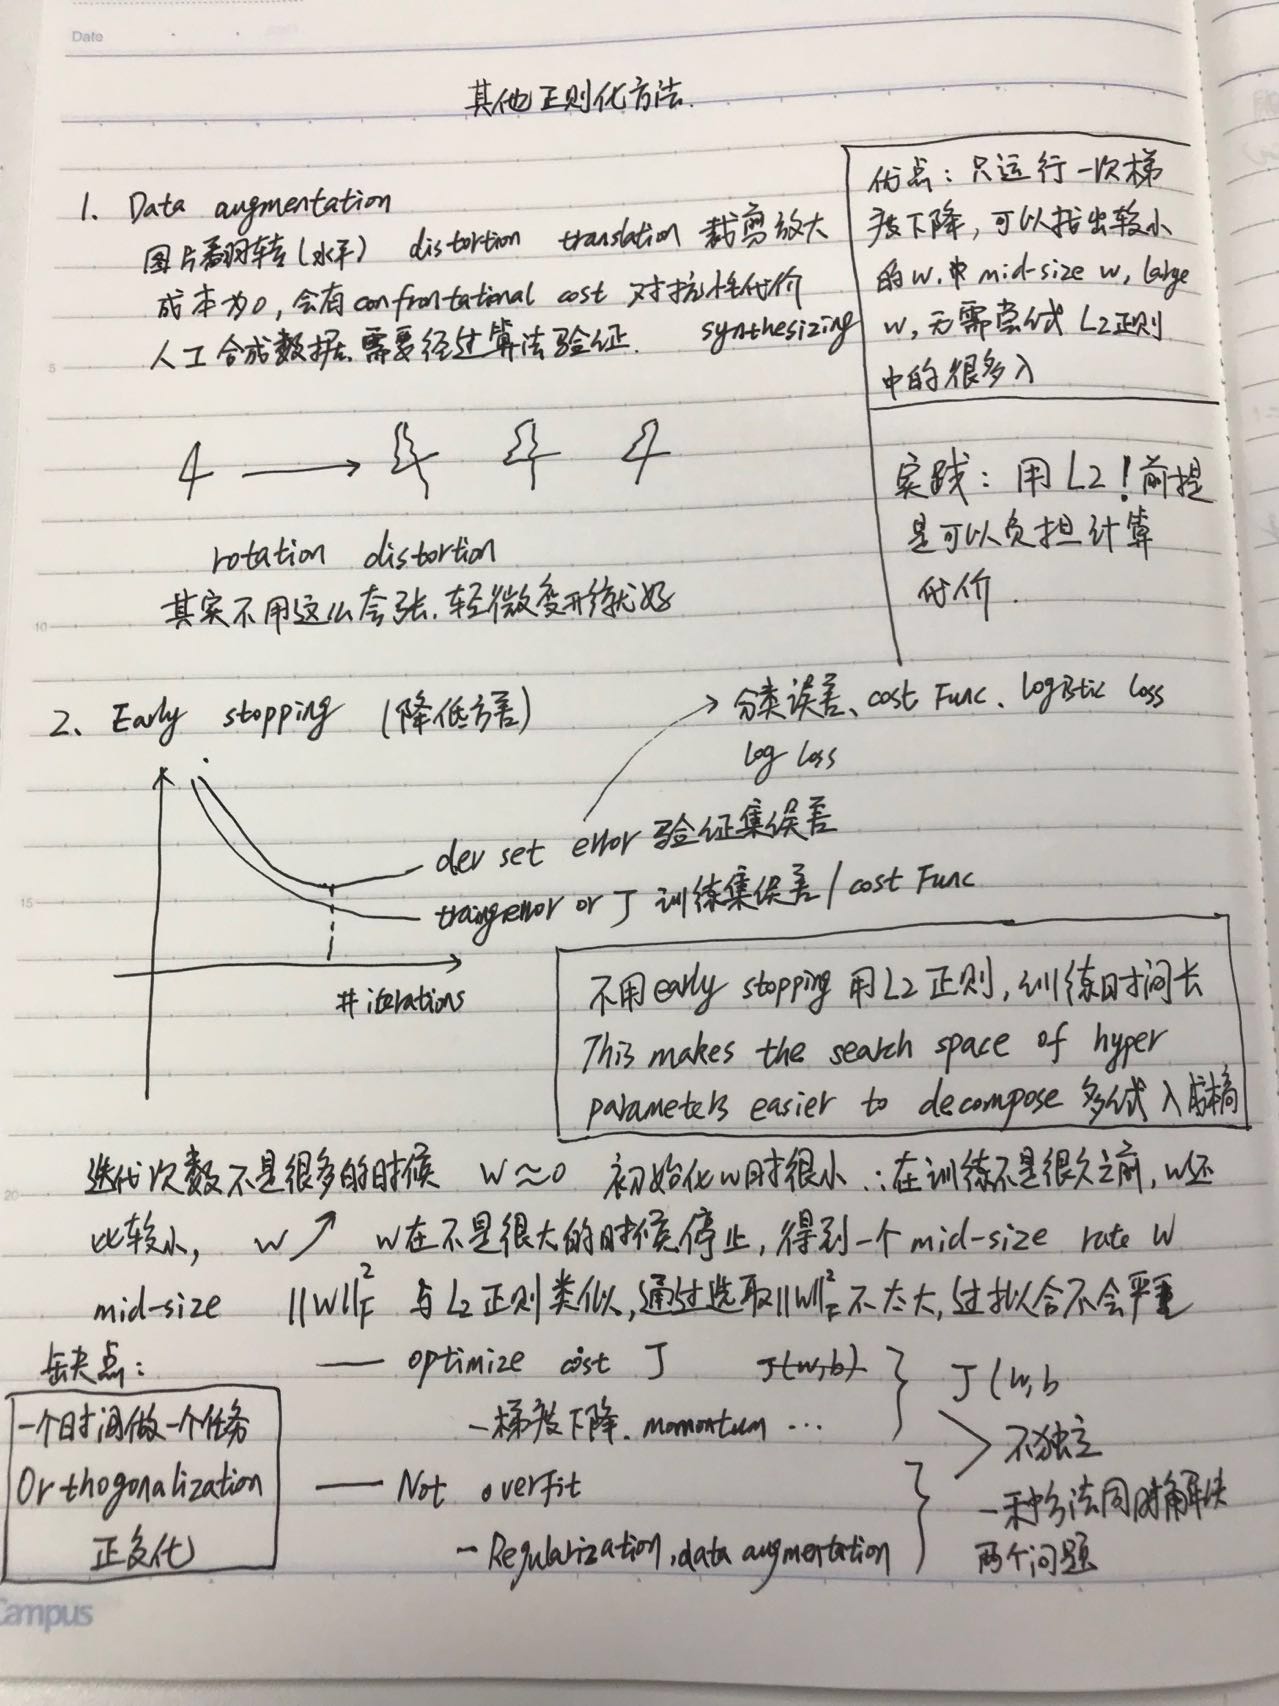 Date
其他正则化方法.
1. Data augmentation
图片翻转(水平) distortion translation 裁剪放大
成本为0, 会有confrontational cost 对抗性代价
人工合成数据, 需要经过算法验证. synthesizing
优点: 只运行一次梯
度下降, 可以找出较小
的w, 中 mid-size w, large
w, 无需尝试 L2正则
中的很多λ
实践: 用L2! 前提
是可以负担计算
代价.
4 → 4 4 4
rotation distortion
其实不用这么夸张, 轻微变形就好
2、Early stopping (降低方差)
→ 分类误差、cost Func、logistic loss
log loss
dev set error 验证集误差
traing error or J 训练集误差/cost Func
# iterations
不用early stopping 用L2正则, 训练时间长
This makes the search space of hyper
parameters easier to decompose 多试λ
迭代次数不是很多的时候 w≈0 初始化w时很小 ∴在训练不是很久之前, w还
比较小, w↗ w在不是很大的时候停止, 得到一个mid-size rate w
mid-size ||w||²_F 与L2正则类似, 通过选取||w||²_F不太大, 过拟合不会严重
缺点:
一个时间做一个任务
Orthogonalization
正交化
— optimize cost J J(w,b)
- 梯度下降. momontum ...
— Not overfit
- Regularization, data augmentation
J(w,b
不独立
一种方法同时解决
两个问题
Campus
5
10
15
20